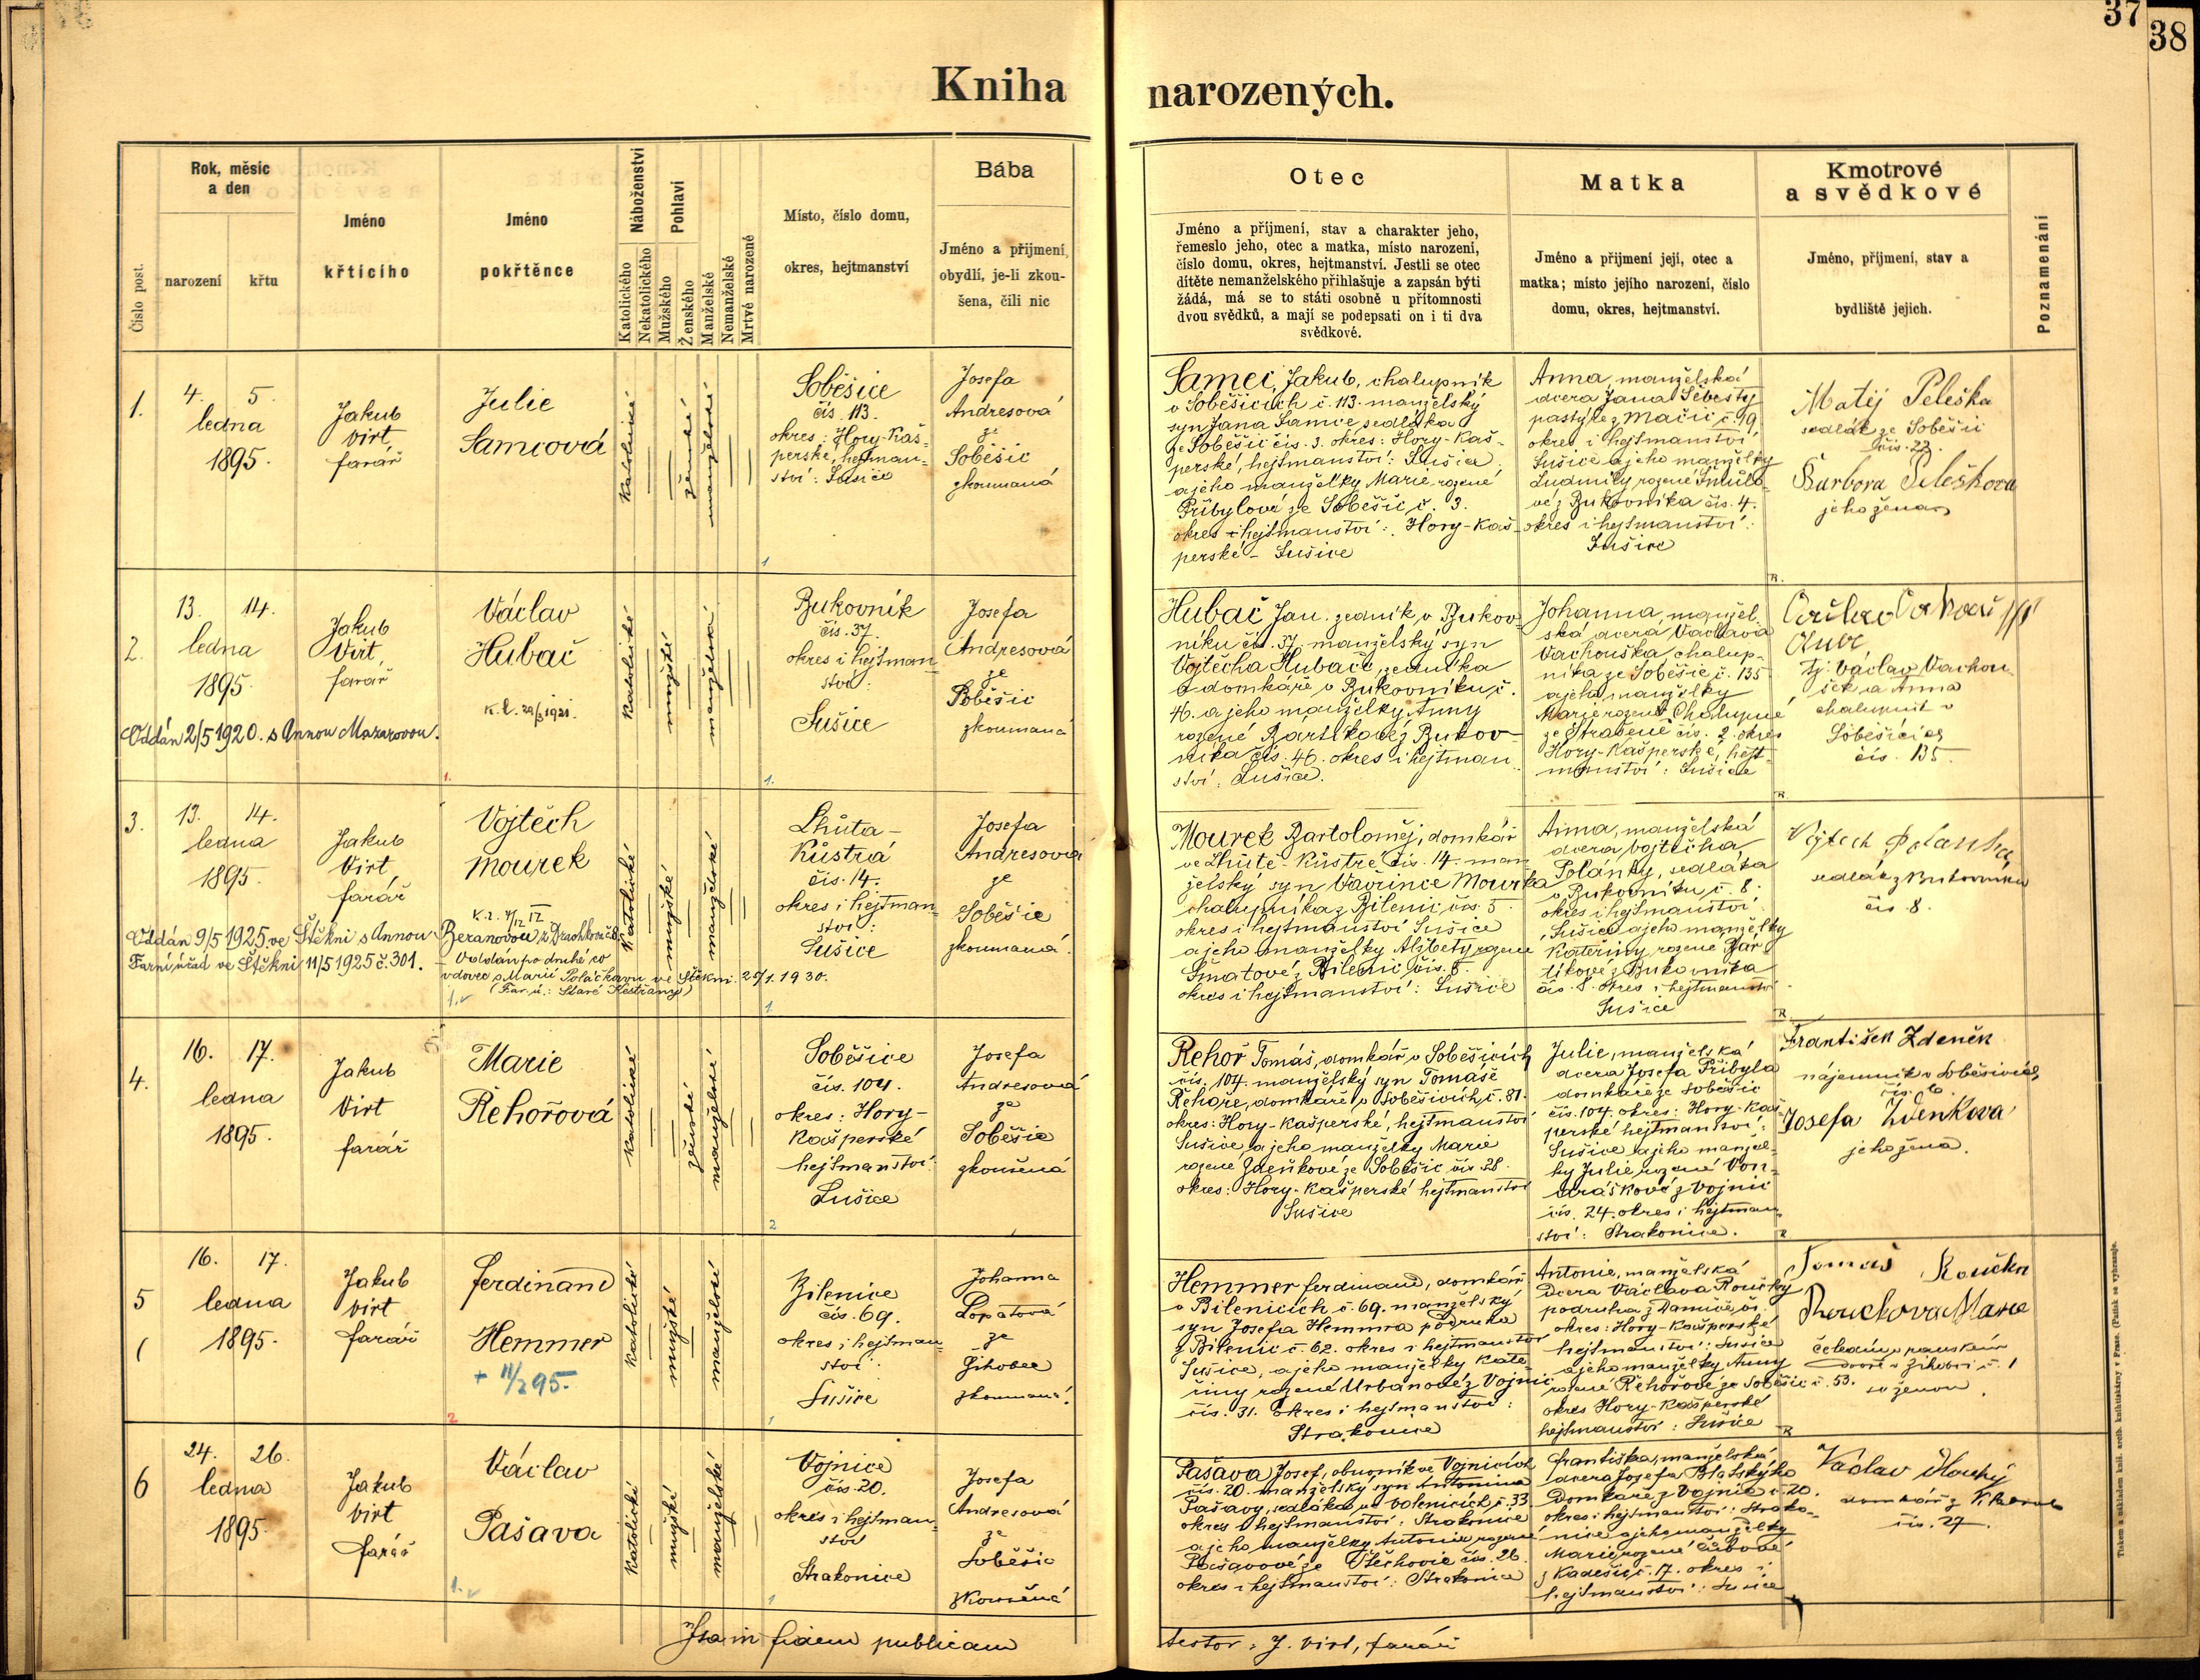 37
38
Kniha narozených.
Číslo post.
Rok, měsíc
a den
narození
křtu
Jméno
křtícího
Jméno
pokřtěnce
Náboženství
Katolického
Nekatolického
Pohlaví
Mužského
Ženského
Manželské
Nemanželské
Mrtvě narozené
Místo, číslo domu,
okres, hejtmanství
Bába
Jméno a příjmení,
obydlí, je-li zkou-
šena, čili nic
Otec
Jméno a příjmení, stav a charakter jeho,
řemeslo jeho, otec a matka, místo narození,
číslo domu, okres, hejtmanství. Jestli se otec
dítěte nemanželského přihlašuje a zapsán býti
žádá, má se to státi osobně u přítomnosti
dvou svědků, a mají se podepsati on i ti dva
svědkové.
Matka
Jméno a příjmení její, otec a
matka; místo jejího narození, číslo
domu, okres, hejtmanství.
Kmotrové
a svědkové
Jméno, příjmení, stav a
bydliště jejich.
Poznamenání
1.
4. 5.
ledna
1895.
Jakub
Virt
farář
Julie
Samcová
katolické
ženské
manželské
Soběšice
čís. 113.
okres: Hory-Kaš-
perské, hejtman-
ství: Sušice
Josefa
Andresová
ze
Soběšic
zkoumaná
Samec, Jakub, chalupník
v Soběšicích č. 113. manželský
syn Jana Samce, sedláka
ze Soběšic čís. 3. okres: Hory-Kaš-
perské, hejtmanství: Sušice,
a jeho manželky Marie rozené
Přibylové ze Soběšic č. 3.
okres i hejtmanství: Hory-Kaš-
perské - Sušice
Anna, manželská
dcera Jana Šebesty
pastýře z Mačic č. 19.
okres i hejtmanství
Sušice a jeho manželky
Ludmily rozené
vé z Bukovníka čís. 4.
okres i hejtmanství:
Sušice
Matěj Peleška
sedlák ze Soběšic
čís. 22.
Barbora Pelešková
jeho žena
2.
13. 14.
ledna
1895.
Jakub
Virt,
farář
Václav
Hubač
Oddán 2/5 1920. s Annou Mazarovou.
katolické
mužské
manželské
Bukovník
čís. 37.
okres i hejtman-
ství:
Sušice
Josefa
Andresová
ze
Soběšic
zkoumaná
Hubač Jan. zedník, v Bukov-
níku čís. 37. manželský syn
Vojtěcha Hubače, zedníka
a domkáře v Bukovníku č.
46. a jeho manželky Anny
rozené Bártíkové z Bukov-
níka čís. 46. okres i hejtman-
ství: Sušice.
Johanna, manžel-
ská dcera Václava
Vachouška chalup-
níka ze Soběšic č. 135
a jeho manželky
Marie rozené Chalupné
ze Strašeně čís. 2. okres
Hory-Kašperské, hejt-
manství: Sušice
Tj. Václav Vachou-
šek a Anna
chalupník v
Soběšicích
čís. 135.
3.
13. 14.
ledna
1895.
Jakub
Virt,
farář
Vojtěch
Mourek
Oddán 9/5 1925. ve Štěkni s Annou Beranovou z
Farní úřad ve Štěkni 11/5 1925 č. 301.
Oddán po druhé co
vdovec s Marií Poláčkovou ve Štěkni. 25/1. 1930.
(Far. ú.: Staré Kestřany)
katolické
mužské
manželské
Lhůta-
Kůstrá
čís. 14.
okres i hejtman-
ství:
Sušice
Josefa
Andresová
ze
Soběšic
zkoumaná
Mourek Bartoloměj, domkář
ve Lhůtě-Kůstré čís. 14. man-
želský syn Vavřince Mourka
chalupníka z Bilenic čís. 5.
okres i hejtmanství Sušice
a jeho manželky Alžběty rozené
Šmatové z Bilenic čís. 8.
okres i hejtmanství: Sušice
Anna, manželská
dcera Vojtěcha
Polánky, sedláka
v Bukovníku č. 8.
okres i hejtmanství
Sušice a jeho manželky
Kateřiny rozené Bár-
tíkové z Bukovníka
čís. 8. okres i hejtmanství
Sušice
Vojtěch Polanka
sedlák z Bukovníka
čís. 8.
4.
16. 17.
ledna
1895.
Jakub
Virt
farář
Marie
Řehořová
katolické
ženské
manželské
Soběšice
čís. 104.
okres: Hory-
Kašperské
hejtmanství:
Sušice
Josefa
Andresová
ze
Soběšic
zkoušená
Řehoř Tomáš, domkář v Soběšicích
čís. 104. manželský syn Tomáše
Řehoře, domkáře v Soběšicích č. 81.
okres: Hory-Kašperské, hejtmanství
Sušice, a jeho manželky Marie
rozené Zdeňkové ze Soběšic čís. 28.
okres: Hory-Kašperské hejtmanství
Sušice
Julie, manželská
dcera Josefa Přibyla
domkáře ze Soběšic
čís. 104. okres: Hory-Kaš-
perské hejtmanství:
Sušice a jeho manžel-
ky Julie rozené Von-
dráškové z Vojnic
čís. 24. okres i hejtman-
ství: Strakonice.
František Zdeněk
nájemník v Soběšicích
čís. 6
Josefa Zdeňkova
jeho žena.
5
16. 17.
ledna
1895.
Jakub
Virt
farář
Ferdinand
Hemmer
+ 11/2 95.
katolické
mužské
manželské
Bilenice
čís. 69.
okres i hejtman-
ství:
Sušice
Johanna
Lopatová
ze
Žihobec
zkoumaná.
Hemmer Ferdinand, domkář
v Bilenicích č. 69. manželský
syn Josefa Hemmra podruha
z Bilenic č. 62. okres i hejtmanství
Sušice, a jeho manželky Kate-
řiny rozené Urbanové z Vojnic
čís. 31. okres i hejtmanství:
Strakonice
Antonie, manželská
dcera Václava Roučky
podruha z Damíče čís.
okres: Hory-Kašperské
hejtmanství: Sušice
a jeho manželky Anny
rozené Řehořové ze Soběšic č. 53.
okres Hory-Kašperské
hejtmanství: Sušice
Tomáš Roučka
Rouckova Marie
čeledín v panském
dvoře v Žihobci č. 1
se ženou.
6
24. 26.
ledna
1895
Jakub
Virt
farář
Václav
Pašava
katolické
mužské
manželské
Vojnice
čís. 20.
okres i hejtman-
ství
Strakonice
Josefa
Andresová
ze
Soběšic
zkoušená
Pašava Josef, obuvník ve Vojnicích
čís. 20. manželský syn Antonína
Pašavy, sedláka ve Volenicích č. 33.
okres i hejtmanství: Strakonice
a jeho manželky Antonie rozené
ze Štěchovic čís. 26.
okres i hejtmanství: Strakonice
Františka, manželská
dcera Josefa Blatského
domkáře z Vojnic č. 20.
okres i hejtmanství: Strako-
nice a jeho manželky
Marie, rozené
z Kadešic č. 17. okres i
hejtmanství: Sušice
Václav Dlouhý
domkář z
čís. 27.
Ita in fidem publicam
testor: J. Virt, farář
Tiskem a nákladem kníž. arcib. knihtiskárny v Praze. (Padělek se vyhrazuje.